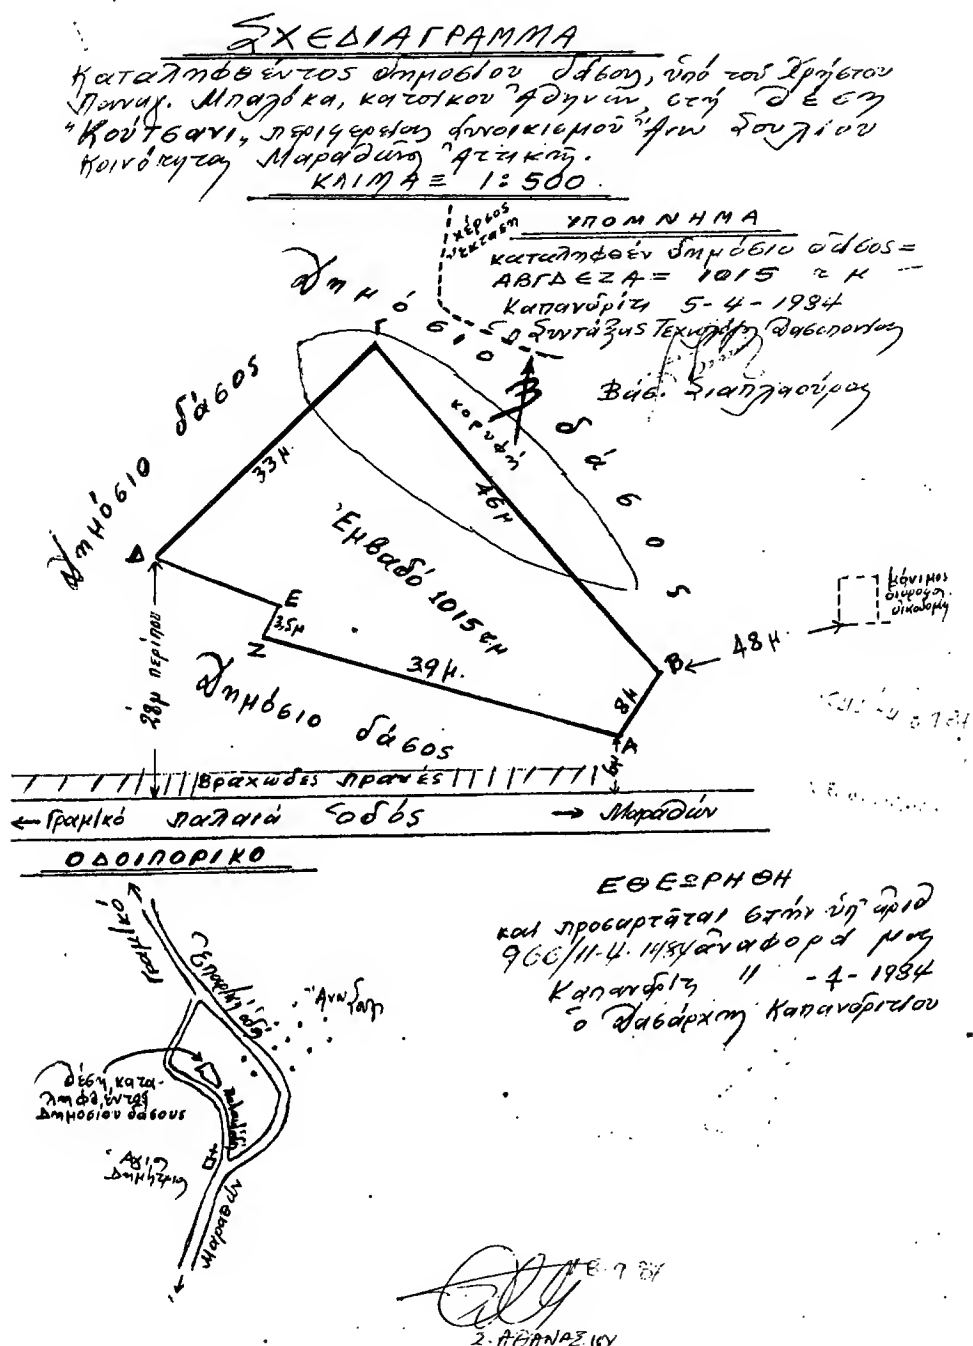 ΣΧΕΔΙΑΓΡΑΜΜΑ
Καταληφθέντος δημοσίου δάσους, ὑπό τοῦ Χρήστου
Παναγ. Μπαλόκα, κατοίκου Ἀθηνῶν, στή θέση
"Κούτσανι,, περιφερείας συνοικισμοῦ Ἄνω Σουλίου
Κοινότητας Μαραθῶνα Ἀττικῆς.
ΚΛΙΜΑΞ 1:500.
χέρσος
ἔκταση
ΥΠΟΜΝΗΜΑ
καταληφθέν δημόσιο δάσος=
ΑΒΓΔΕΖΑ= 1015 τμ
Καπανδρίτι 5-4-1984
Ὁ Συντάξας Τεχνολόγος Δασοπονίας
Βασ. Σιαπλαούρας
Δημόσιο δάσος
Δημόσιο δάσος
Γ
Β
κορυφή
33μ.
46μ
Ἐμβαδό 1015τμ
Δ
Ε
3,5μ
Ζ
39μ.
Β
8μ
Α
6μ
48μ.
μόνιμος
οἰκοδομή
28μ περίπου
Δημόσιο δάσος
Βραχῶδες πρανές
← Γραμ/κό παλαιά ὁδός → Μαραθών
ΟΔΟΙΠΟΡΙΚΟ
Γραμ/κό
Ἐπαρ/κή ὁδός
Ἄνω Σούλι
θέση κατα-
ληφθέντος
Δημοσίου δάσους
παλαιά ὁδός
Ἅγιος
Δημήτριος
Μαραθών
ΕΘΕΩΡΗΘΗ
καί προσαρτᾶται στήν ὑπ' ἀριθ
966/11-4-1984 ἀναφορά μας
Καπανδρίτι 11 -4-1984
ὁ Δασάρχης Καπανδριτίου
Σ. ΑΘΑΝΑΣΙΟΥ